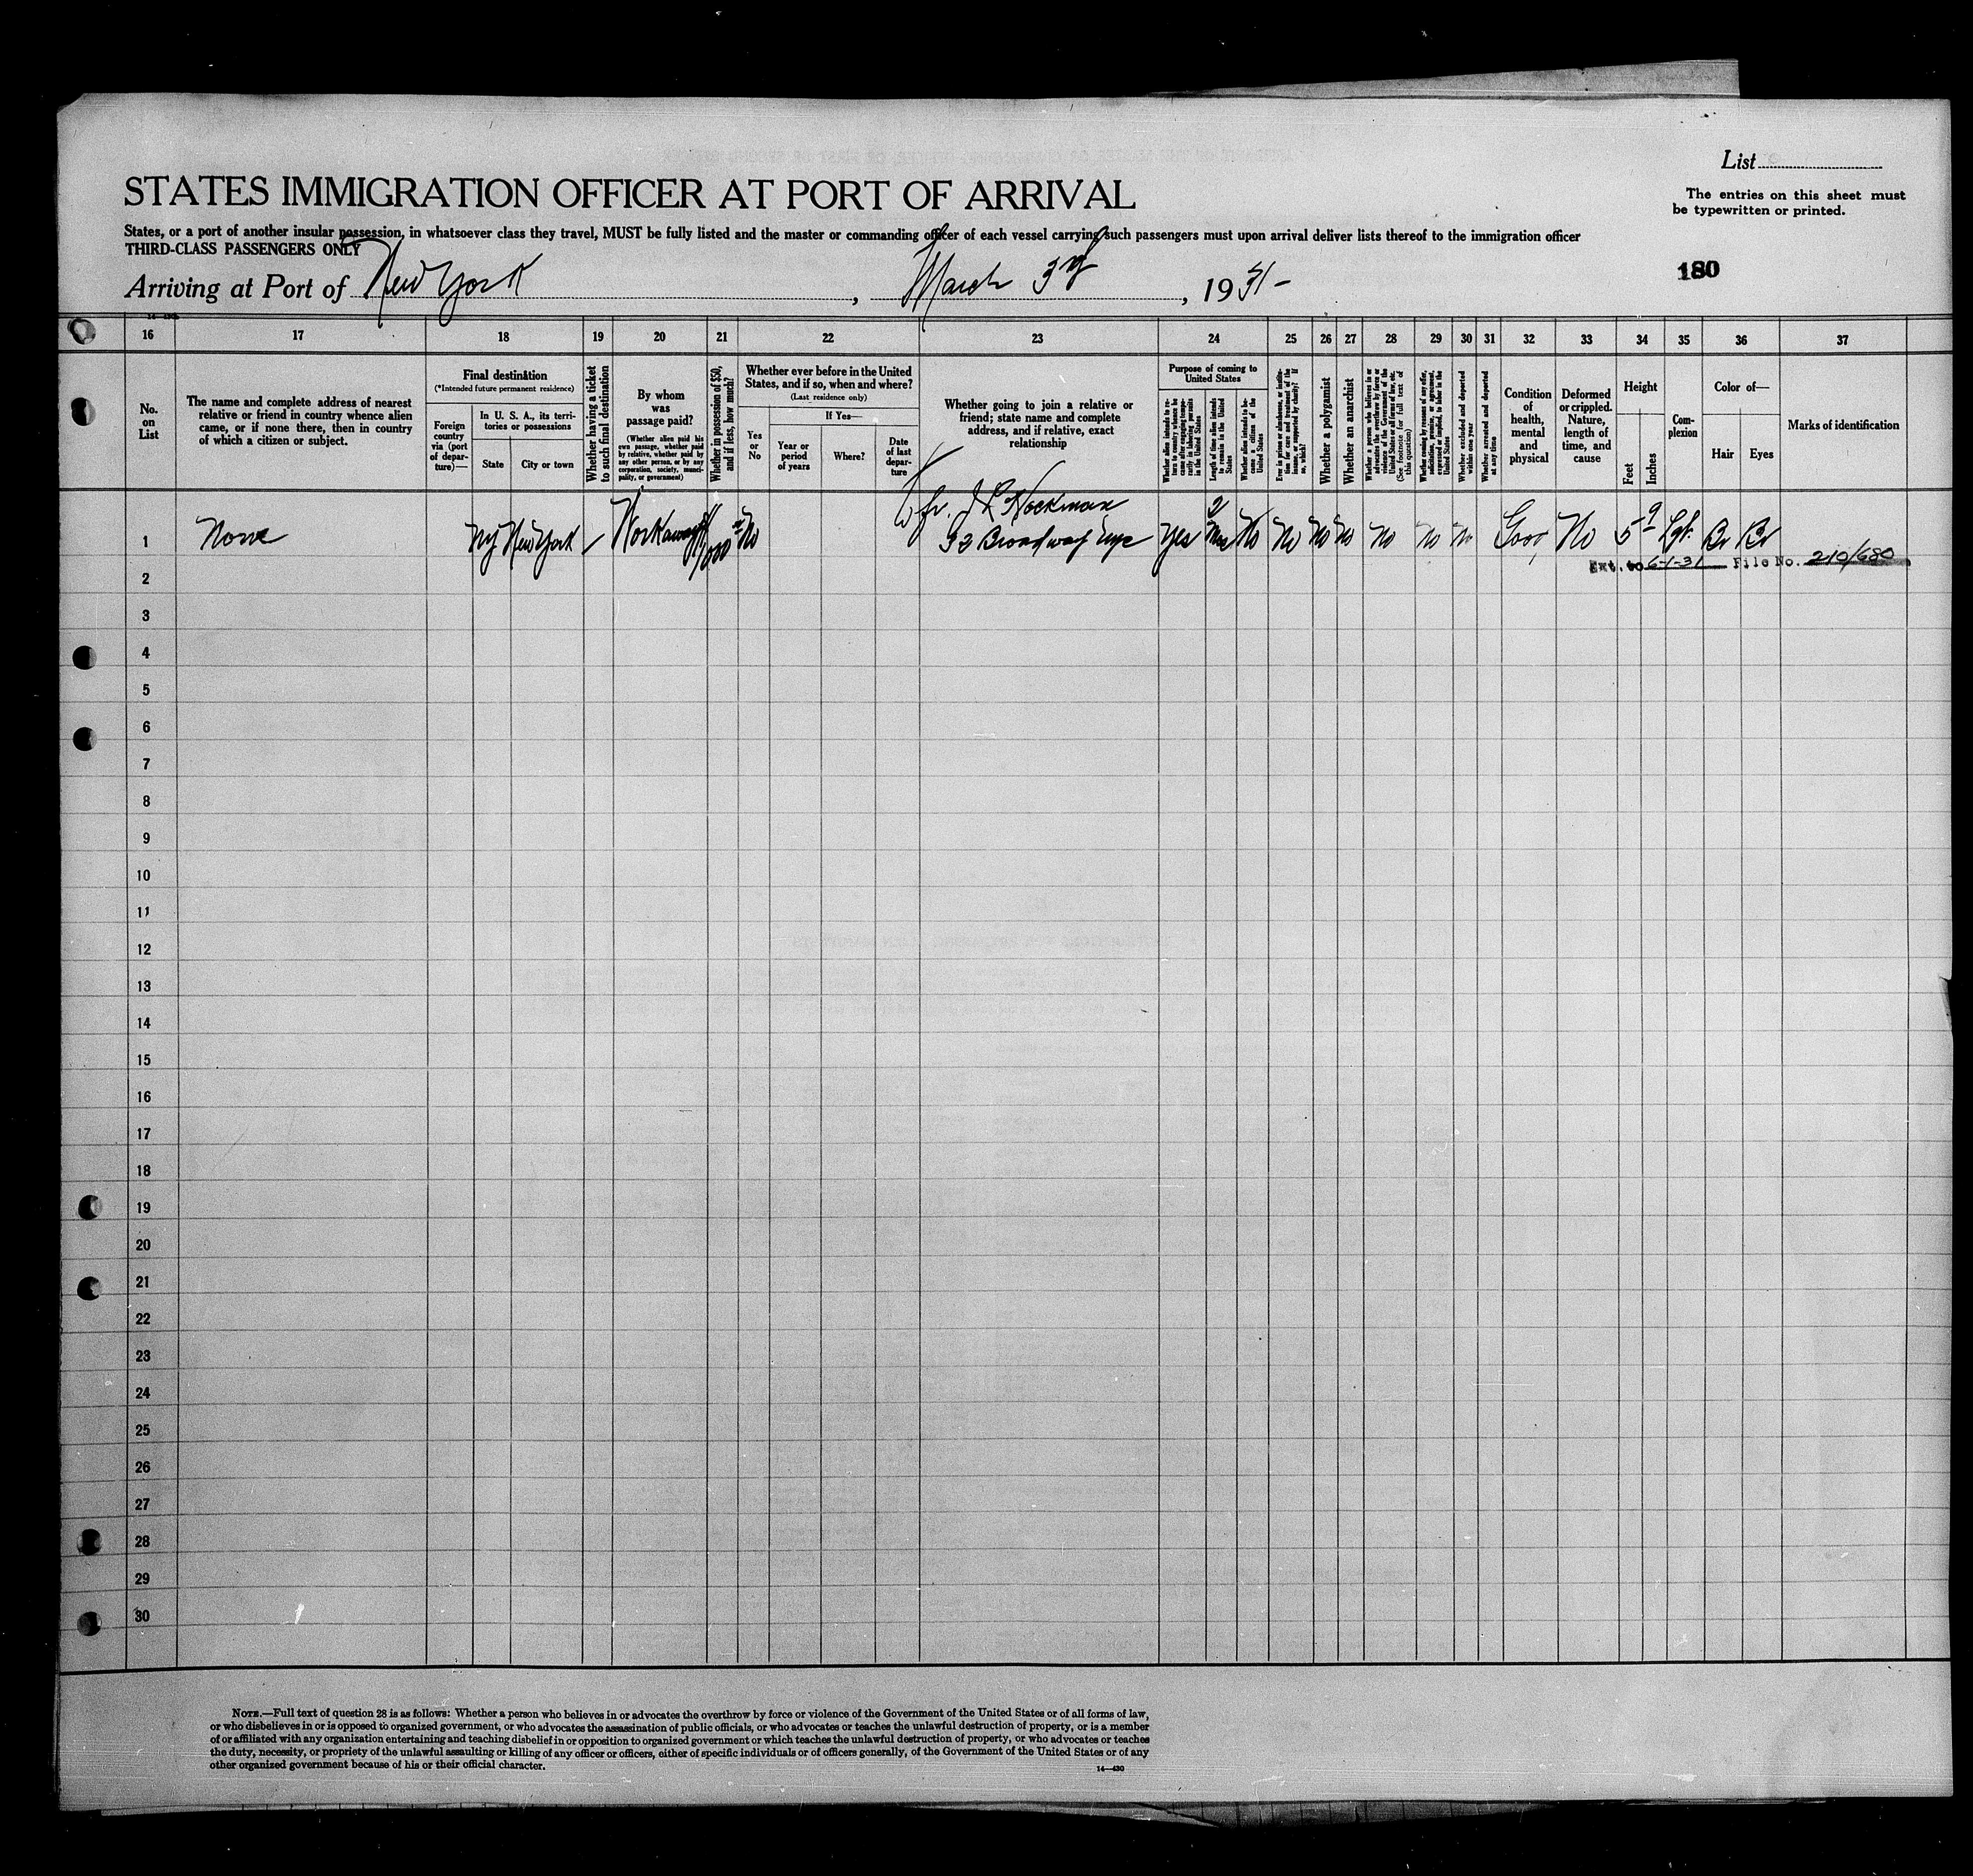 List
STATES IMMIGRATION OFFICER AT PORT OF ARRIVAL
The entries on this sheet must
be typewritten or printed.
States, or a port of another insular possession, in whatsoever class they travel, MUST be fully listed and the master or commanding officer of each vessel carrying such passengers must upon arrival deliver lists thereof to the immigration officer
THIRD-CLASS PASSENGERS ONLY
180
Arriving at Port of New York, March 3rd, 1931-
16 17 18 19 20 21 22 23 24 25 26 27 28 29 30 31 32 33 34 35 36 37
No.
on
List
The name and complete address of nearest
relative or friend in country whence alien
came, or if none there, then in country
of which a citizen or subject.
Final destination
(*Intended future permanent residence)
Foreign
country
via (port
of depar-
ture)—
In U. S. A., its terri-
tories or possessions
State
City or town
Whether having a ticket
to such final destination
By whom
was
passage paid?
(Whether alien paid his
own passage, whether paid
by relative, whether paid by
any other person, or by any
corporation, society, munici-
pality, or government)
Whether in possession of $50,
and if less, how much?
Whether ever before in the United
States, and if so, when and where?
(Last residence only)
Yes
or
No
If Yes—
Year or
period
of years
Where?
Date
of last
depar-
ture
Whether going to join a relative or
friend; state name and complete
address, and if relative, exact
relationship
Purpose of coming to
United States
Whether alien intends to re-
turn to country whence he
came after engaging tempo-
rarily in laboring pursuits
in the United States
Length of time alien intends
to remain in the United
States
Whether alien intends to be-
come a citizen of the
United States
Ever in prison or almshouse, or institu-
tion for care and treatment of the
insane, or supported by charity? If
so, which?
Whether a polygamist
Whether an anarchist
Whether a person who believes in or
advocates the overthrow by force or
violence of the Government of the
United States or all forms of law, etc.
(See footnote for full text of
this question)
Whether coming by reason of any offer,
solicitation, promise, or agreement,
expressed or implied, to labor in the
United States
Whether excluded and deported
within one year
Whether arrested and deported
at any time
Condition
of
health,
mental
and
physical
Deformed
or crippled.
Nature,
length of
time, and
cause
Height
Feet
Inches
Com-
plexion
Color of—
Hair
Eyes
Marks of identification
fr. J L Hockman
1 None NY New York - Workaway No 93 Broadway nyc Yes 2 Mos No No No No No No No Good No 5 9 Lgt. Br Br
Ext. to 6-1-31 File No. 210/680
2
3
4
5
6
7
8
9
10
11
12
13
14
15
16
17
18
19
20
21
22
23
24
25
26
27
28
29
30
NOTE.—Full text of question 28 is as follows: Whether a person who believes in or advocates the overthrow by force or violence of the Government of the United States or of all forms of law,
or who disbelieves in or is opposed to organized government, or who advocates the assassination of public officials, or who advocates or teaches the unlawful destruction of property, or is a member
of or affiliated with any organization entertaining and teaching disbelief in or opposition to organized government or which teaches the unlawful destruction of property, or who advocates or teaches
the duty, necessity, or propriety of the unlawful assaulting or killing of any officer or officers, either of specific individuals or of officers generally, of the Government of the United States or of any
other organized government because of his or their official character.
14—430